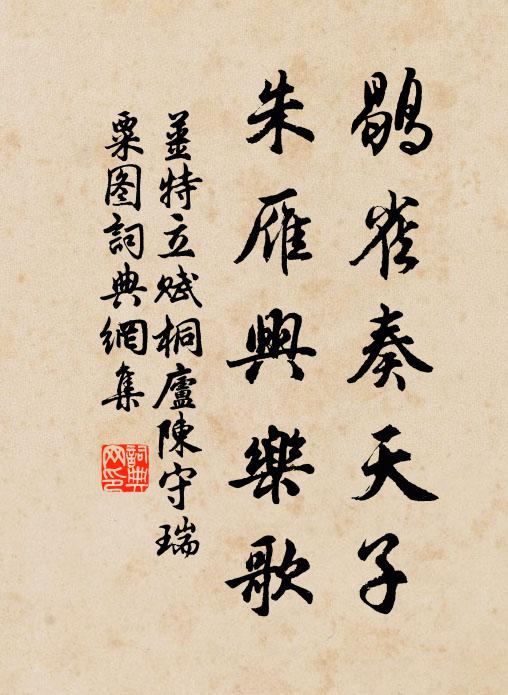 鶡雀奏天子
朱雁興樂歌
薑特立賦桐廬陳守瑞
粟图詞典網集
詞典
网印